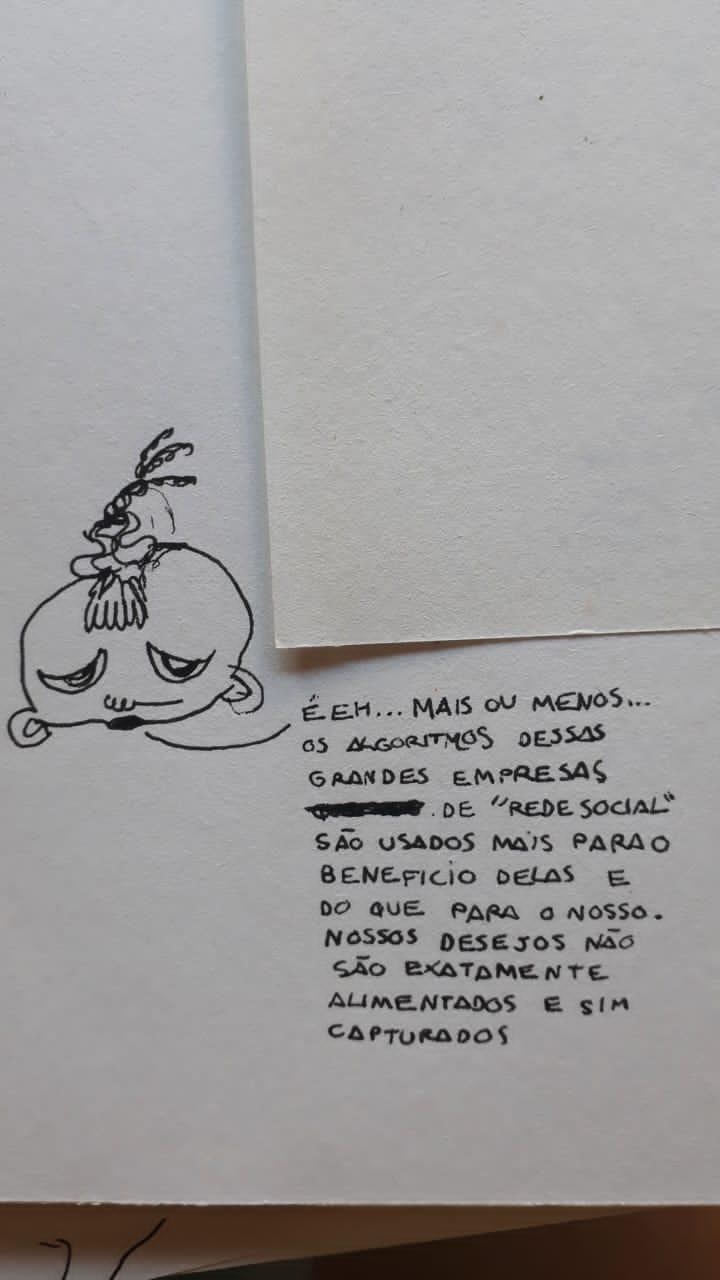 ÉEH... MAIS OU MENOS...
OS ALGORITMOS DESSAS
GRANDES EMPRESAS
. DE "REDE SOCIAL"
SÃO USADOS MAIS PARA O
BENEFICIO DELAS E
DO QUE PARA O NOSSO.
NOSSOS DESEJOS NÃO
SÃO EXATAMENTE
ALIMENTADOS E SIM
CAPTURADOS